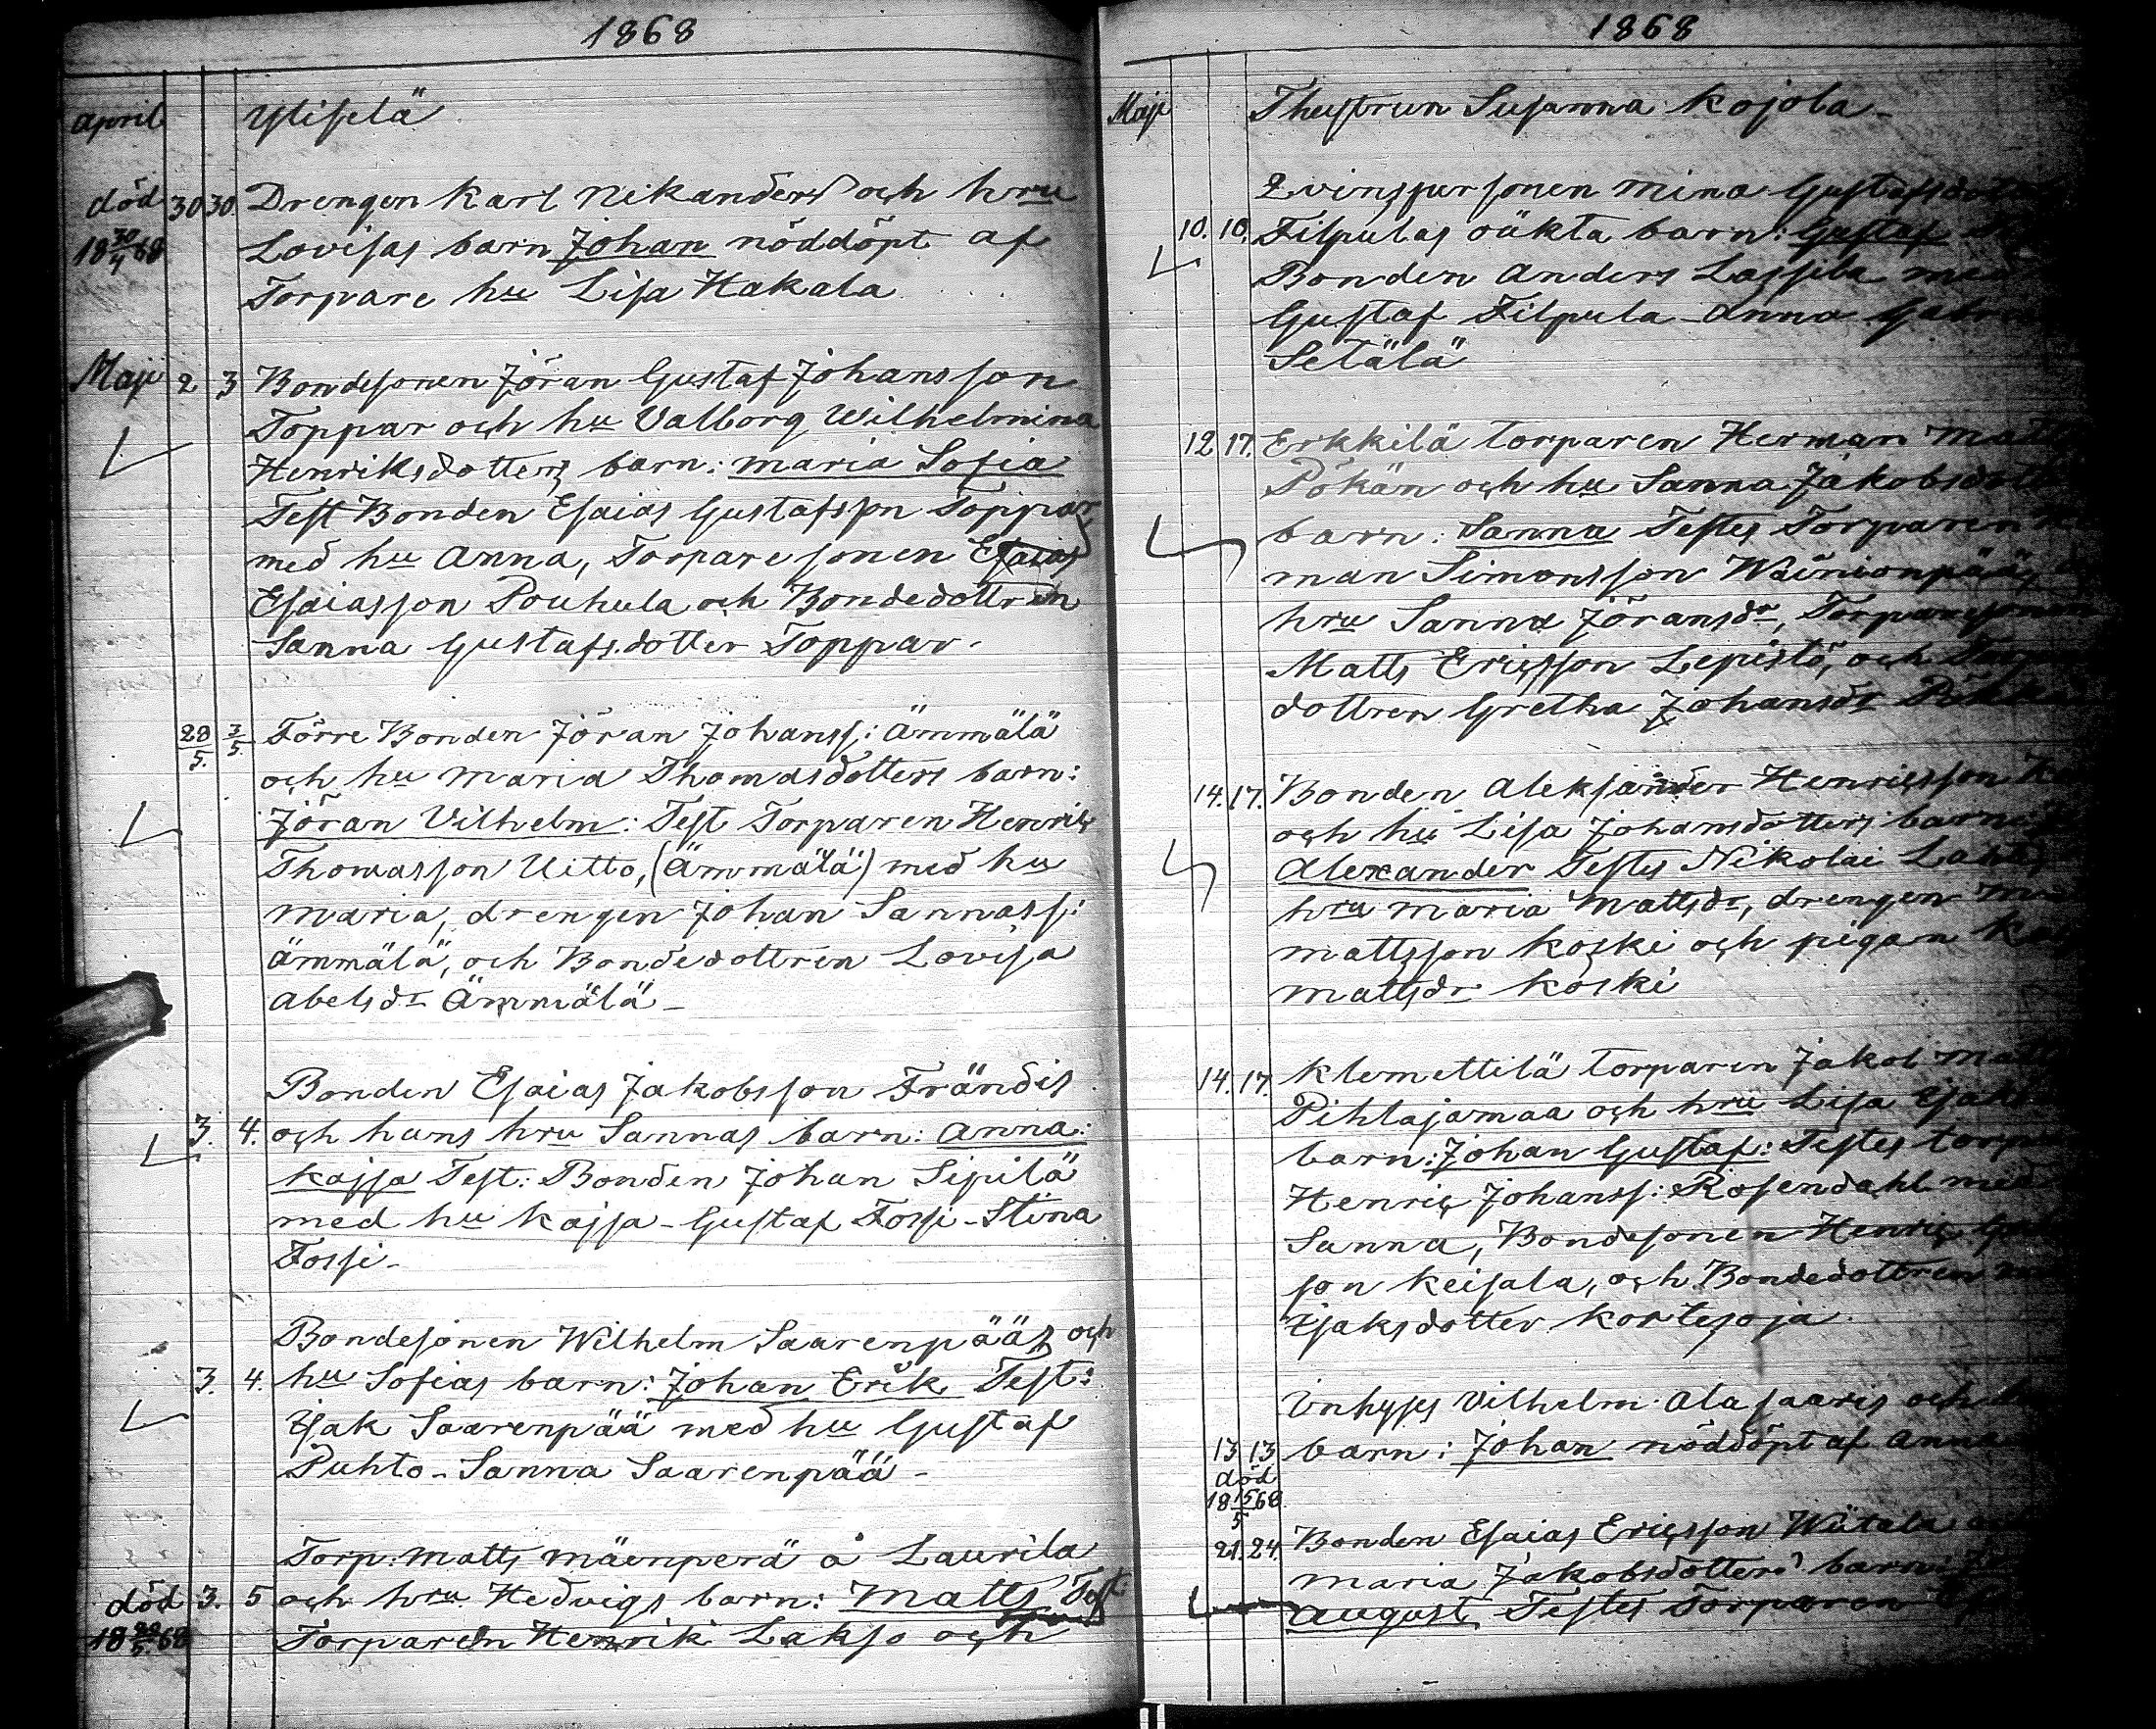 1868
April Yliselä
död 30 30 Drengen Karl Nikanders och hru
18 30/4 68 Lovisas barn Johan nöddöpt af
Torpare hu Lisa Hakala
Maji 2 3 Bondesonen Jöran Gustaf Johansson
Toppar och hu Valborg Wilhelmina
Henriksdotters barn: Maria Sofia
Test Bonden Esaias Gustafsson Toppar
med hu Anna, Torparesonen Esaias
Esaiasson Pouhula och Bondedottren
Sanna Gustafsdotter Toppar.
3/5. Förre Bonden Jöran Johanss: Ämmälä
och hu Maria Thomasdotters barn:
Jöran Vilhelm: Test Torparen Henric
Thomasson Uitto, (Ämmälä) med hu
Maria, drengen Johan Sannass:
Ämmälä, och Bondedottren Lovisa
Abelsdr Ämmälä -
Bonden Esaias Jakobsson Frändis
3. 4. och hans hru Sannas barn: Anna
Kajsa Test: Bonden Johan Sipilä
med hu Kajsa - Gustaf Fossi - Stina
Fossi -
Bondesonen Wilhelm Saarenpääs och
3. 4. hu Sofias barn: Johan Erik Test:
Isak Saarenpää med hu Gustaf
Puhto - Sanna Saarenpää -
Torp: Matts Mäenperä å Laurila
död 3. 5 och hru Hedvigs barn: Matts Test:
Torparen Henrik Lakso och
1868
Maji Susanna Kojola -
Mina
10. 10. Filpulas oäkta barn: Gustaf
Bonden Anders Lassila
Gustaf Filpula - Anna
Setälä
12 17. Erkkilä torparen Herman
och hu Sanna
barn: Sanna Testes Torparen
man Simonsson
hru Sanna Jöransdr,
Matts Ericsson Lepistö, och
dottren Gretha Johansdr
14. 17. Bonden Aleksander Henricsson
och hu Lisa Johansdotters barn
Alexander Testes Nikolai
hru Maria Mattsdr, drengen
Mattsson Koski och pigan
Mattsdr Koski
14. 17. Klemettilä torparen Jakob
Pihlajamaa och hru Lisa
barn: Johan Gustaf: Testes
Henric Johanss: Rosendahl med
Sanna, Bondesonen Henric
son Keisala, och Bondedottren
Isaksdotter Kortesoja.
Inhyses Vilhelm Alasaaris och
13 13 barn: Johan nöddöpt af Anna
död
18 15/5 68
21. 24. Bonden Esaias Ericsson
Maria Jakobsdotters barn:
August Testes Torparen